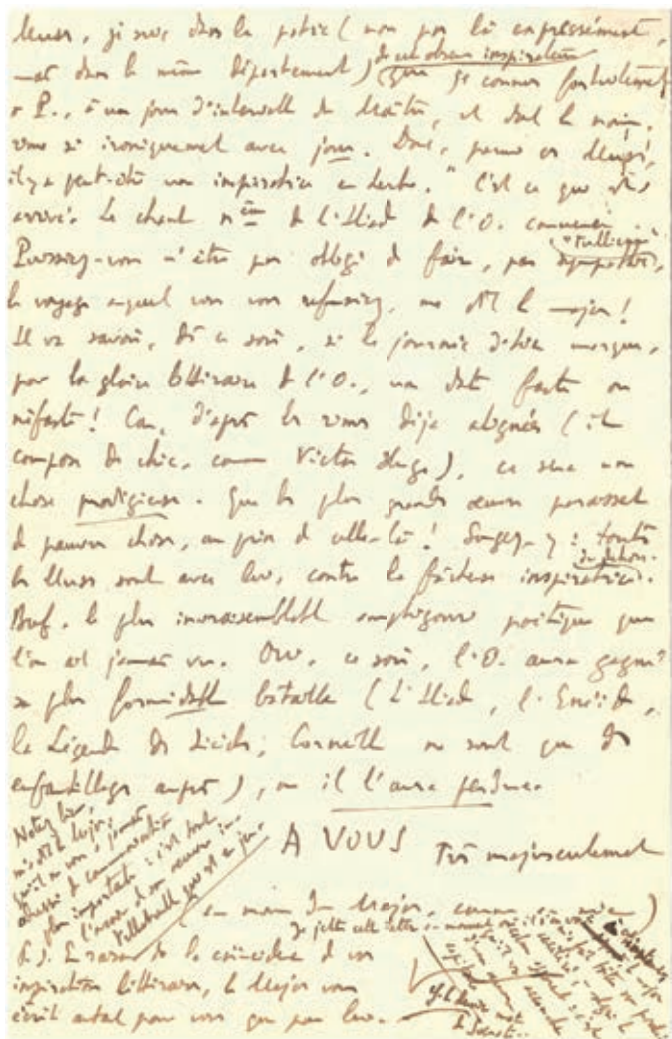 Muses, je suis dans la patrie (non pas là expressément,
mais dans le même département) de cet obscur inspirateur que je connus fortuitement
à P., à un jour d'intervalle du Maître, et dont le nom,
rime si ironiquement avec jour. Donc, parmi ces
il y a peut-être une inspiratrice en herbe." C'est ce qui est
arrivé. Le chant nième de l'Iliade de l'O. commence.
Puissiez-vous n'être pas obligé de faire, par sympathie,
le voyage auquel vous vous refusiez, me dit le major!
Il va savoir, dès ce soir, si la journée d'hier marque,
pour la gloire littéraire de l'O., une date faste ou
néfaste! Car, d'après les rimes déjà alignées (il
compose de chic, comme Victor Hugo), ce sera une
chose prodigieuse. Que les plus grandes œuvres paraissent
de pauvres choses, au prix de celle-là! Songez-y: toutes
les Muses sont avec lui, contre la fâcheuse inspiratrice du dehors.
Bref, le plus invraisemblable amphigouri poétique que
l'on ait jamais vu. Ou, ce soir, l'O. aura gagné
sa plus formidable bataille (L'Iliade, l'Enéide,
la Légende des Siècles, Corneille ne sont que des
enfantillages auprès), ou il l'aura perdue.
Notez bien,
me dit le Major,
qu'il ne vous a jamais
adressé de communication
plus importante: c'est tout
l'avenir d'son œuvre in-
tellectuelle qui est en jeu.
A VOUS
Très majusculement
(au nom du Major, comme au mien)
P.S. En raison de la coïncidence d'une
inspiration littéraire, le Major vous
écrit autant pour vous que pour lui.
Je jette cette lettre